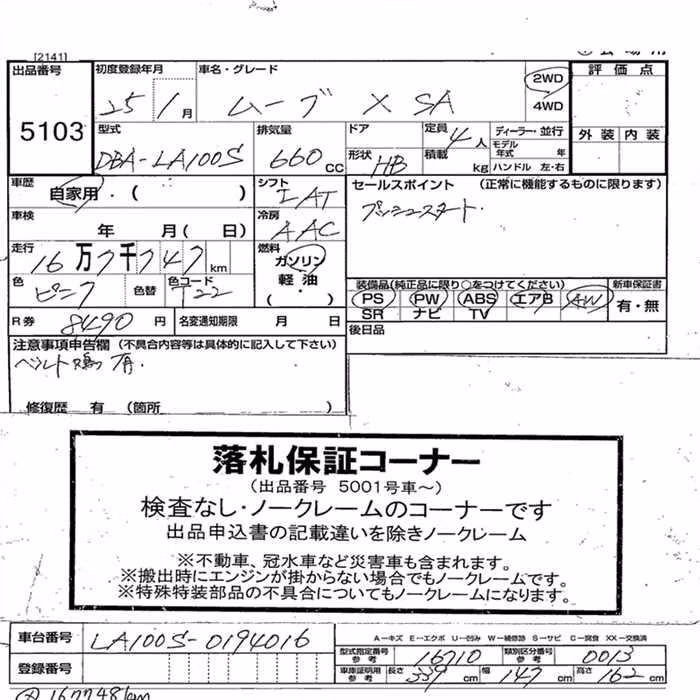 [2141]
出品番号 5103
初度登録年月 25 1月
車名・グレード ムーブ X SA
2WD
4WD
評価点
外装 内装
型式 DBA-LA100S
排気量 660 CC
ドア
形状 HB
定員 4人
積載 kg
ディーラー・並行
モデル年式 年
ハンドル 左・右
車歴 自家用・( )
シフト IAT
セールスポイント (正常に機能するものに限ります)
プッシュスタート
車検 年 月(日)
冷房 AAC
走行 16万7千747km
燃料 ガソリン
軽油
( ・ )
色 ピンク 色替 色コード T22
装備品(純正品に限り○をつけてください) 新車保証書
PS PW ABS エアB AW 有・無
SR ナビ TV
R券 8490円 名変通知期限 月 日
後日品
注意事項申告欄 (不具合内容等は具体的に記入して下さい)
ベルト鳴有.
修復歴 有 (箇所 )
落札保証コーナー
(出品番号 5001号車~)
検査なし・ノークレームのコーナーです
出品申込書の記載違いを除きノークレーム
※不動車、冠水車など災害車も含まれます。
※搬出時にエンジンが掛からない場合でもノークレームです。
※特殊特装部品の不具合についてもノークレームになります。
車台番号 LA100S-0194016
A-キズ E-エクボ U-凹み W-補修跡 S-サビ C-腐食 XX-交換済
型式指定番号 参考 16710 類別区分番号 参考 0013
登録番号
車庫証明用 参考 長さ 339cm 幅 147cm 高さ 162cm
167748km